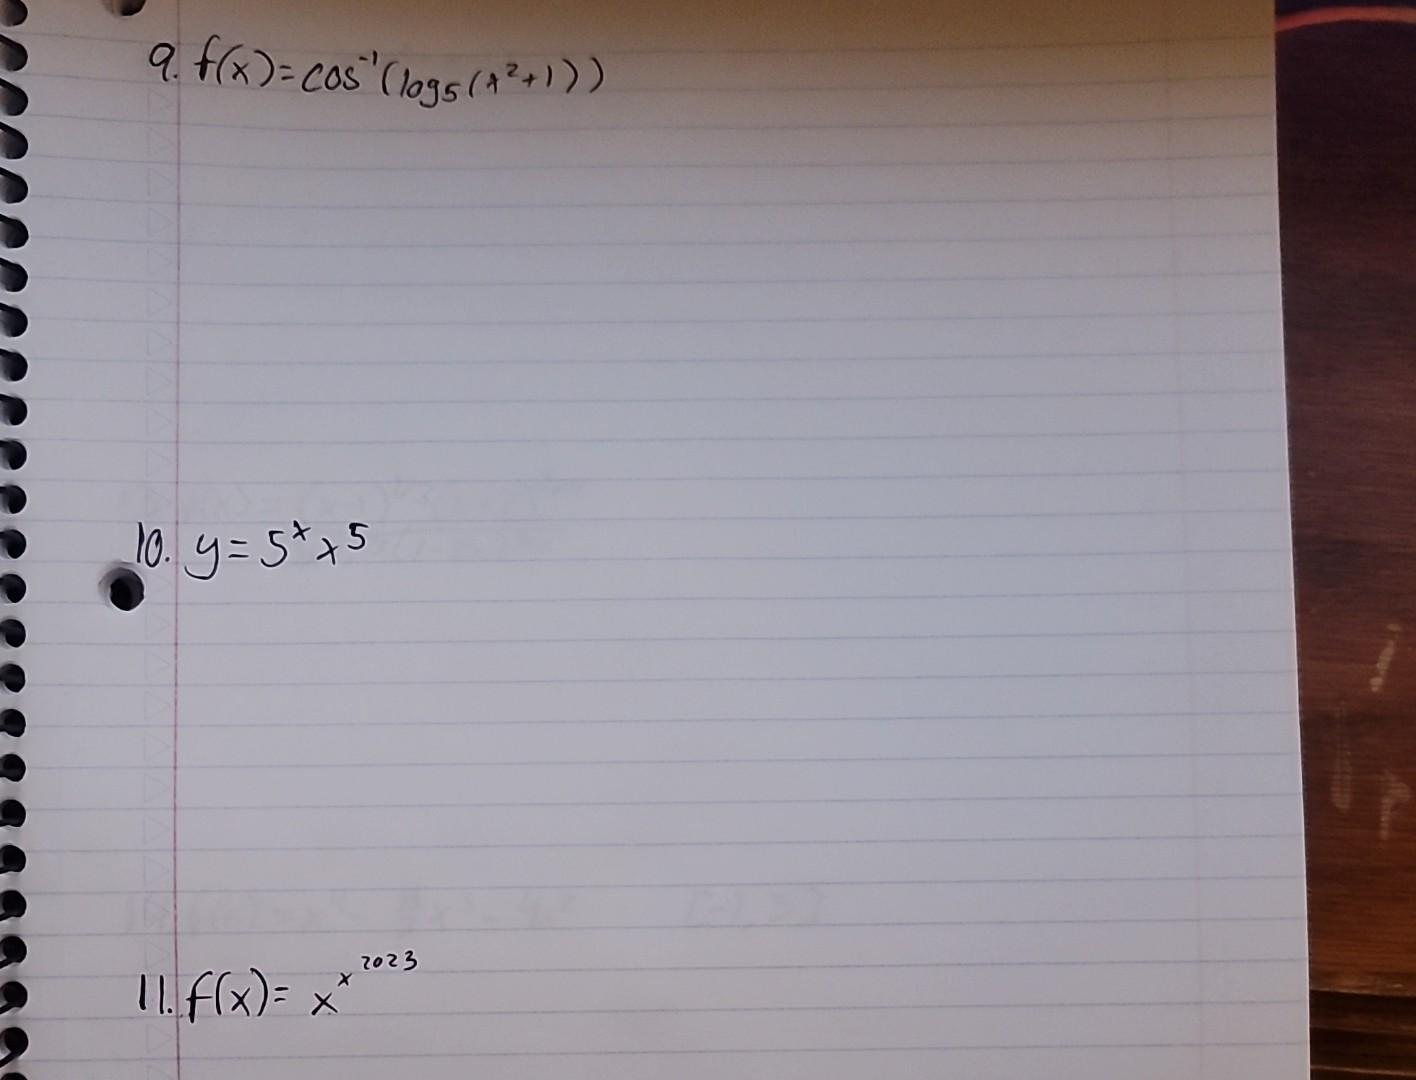 9. f(x)=cos⁻¹(log₅(x²+1))
10. y=5ˣx⁵
11. f(x)= x^x^2023